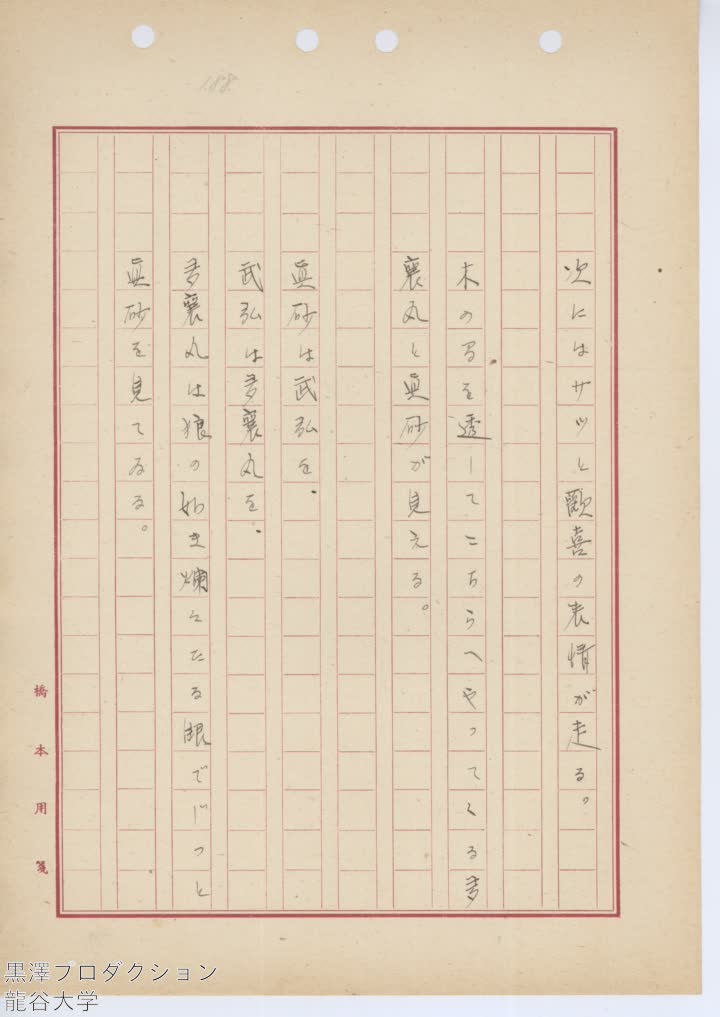 188
次にはサッと歡喜の表情が走る。
木の間を透してこちらへやってくる多
襄丸と眞砂が見える。
眞砂は武弘を、
武弘は多襄丸を、
多襄丸は狼の如き爛々たる眼でじっと
眞砂を見てゐる。
橋本用箋
黒澤プロダクション
龍谷大学